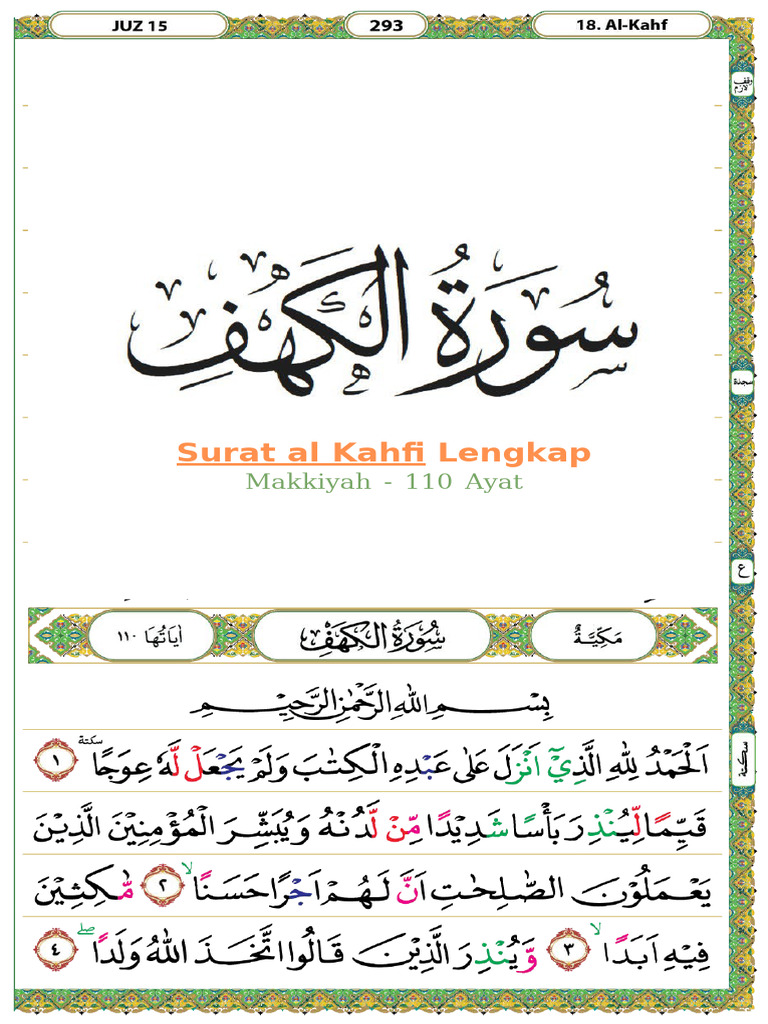 JUZ 15 293 18. Al-Kahf
وقف لازم
سُوْرَةُ الْكَهْفِ
سجدة
Surat al Kahfi Lengkap
Makkiyah - 110 Ayat
ع
مَكِّيَّةٌ سُوْرَةُ الْكَهْفِ اٰيَاتُهَا ١١٠
بِسْمِ اللّٰهِ الرَّحْمٰنِ الرَّحِيْمِ
اَلْحَمْدُ لِلّٰهِ الَّذِيْٓ اَنْزَلَ عَلٰى عَبْدِهِ الْكِتٰبَ وَلَمْ يَجْعَلْ لَّهٗ عِوَجًا ۜ ١
سكتة
قَيِّمًا لِّيُنْذِرَ بَأْسًا شَدِيْدًا مِّنْ لَّدُنْهُ وَيُبَشِّرَ الْمُؤْمِنِيْنَ الَّذِيْنَ
يَعْمَلُوْنَ الصّٰلِحٰتِ اَنَّ لَهُمْ اَجْرًا حَسَنًاۙ ٢ مَّاكِثِيْنَ
فِيْهِ اَبَدًاۙ ٣ وَّيُنْذِرَ الَّذِيْنَ قَالُوا اتَّخَذَ اللّٰهُ وَلَدًاۖ ٤